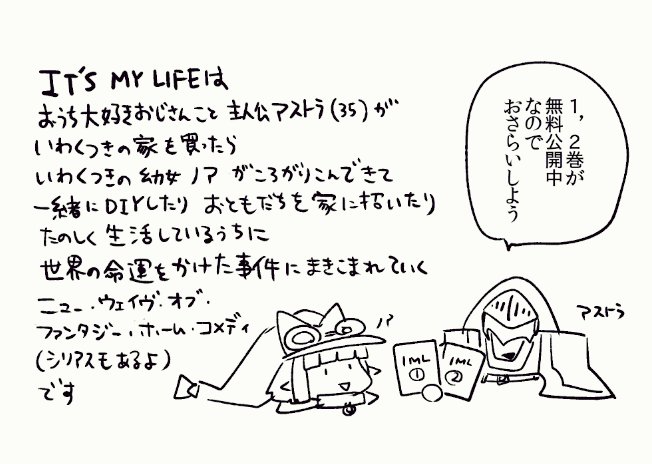 IT'S MY LIFEは
おうち大好きおじさんこと 主人公アストラ(35)が
いわくつきの家を買ったら
いわくつきの幼女ノア がころがりこんできて
一緒にDIYしたり おともだちを家に招いたり
たのしく生活しているうちに
世界の命運をかけた事件にまきこまれていく
ニュー・ウェイヴ・オブ・
ファンタジー・ホーム・コメディ
(シリアスもあるよ)
です
1,2巻が
無料公開中
なので
おさらいしよう
アストラ
!?
IML
①
IML
②